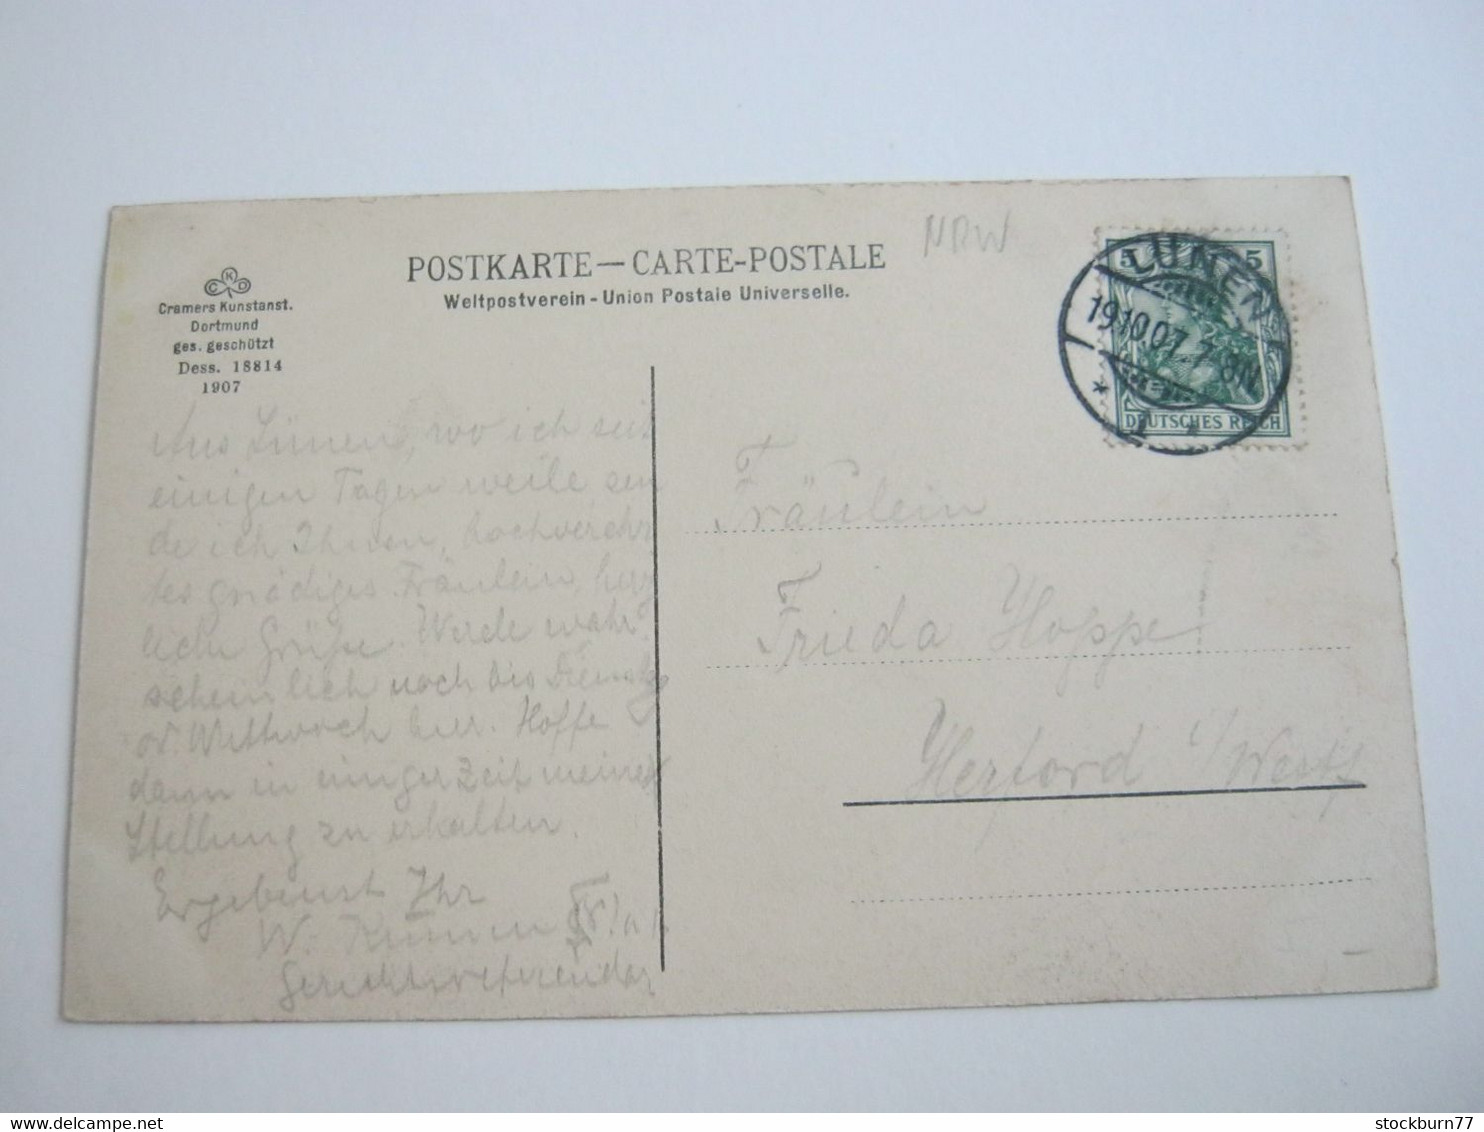 NRW
POSTKARTE — CARTE-POSTALE
Weltpostverein - Union Postale Universelle.
CKD
Cramers Kunstanst.
Dortmund
ges. geschützt
Dess. 18814
1907
5 5
DEUTSCHES REICH
LÜNEN
19.10.07. 7-8N.
* 1 *
Aus Lünen, wo ich seit
einigen Tagen weile sen
de ich Ihnen, hochverehr
tes gnädiges Fräulein, herz
liche Grüße. Werde wahr
scheinlich noch bis Dienstag
od. Mittwoch hier. Hoffe
dann in einiger Zeit meine
Stellung zu erhalten.
Ergebenst Ihr
W.
Gerichtsreferendar
Fräulein
Frieda Hoppe
Herford i/Westf
stockburn77